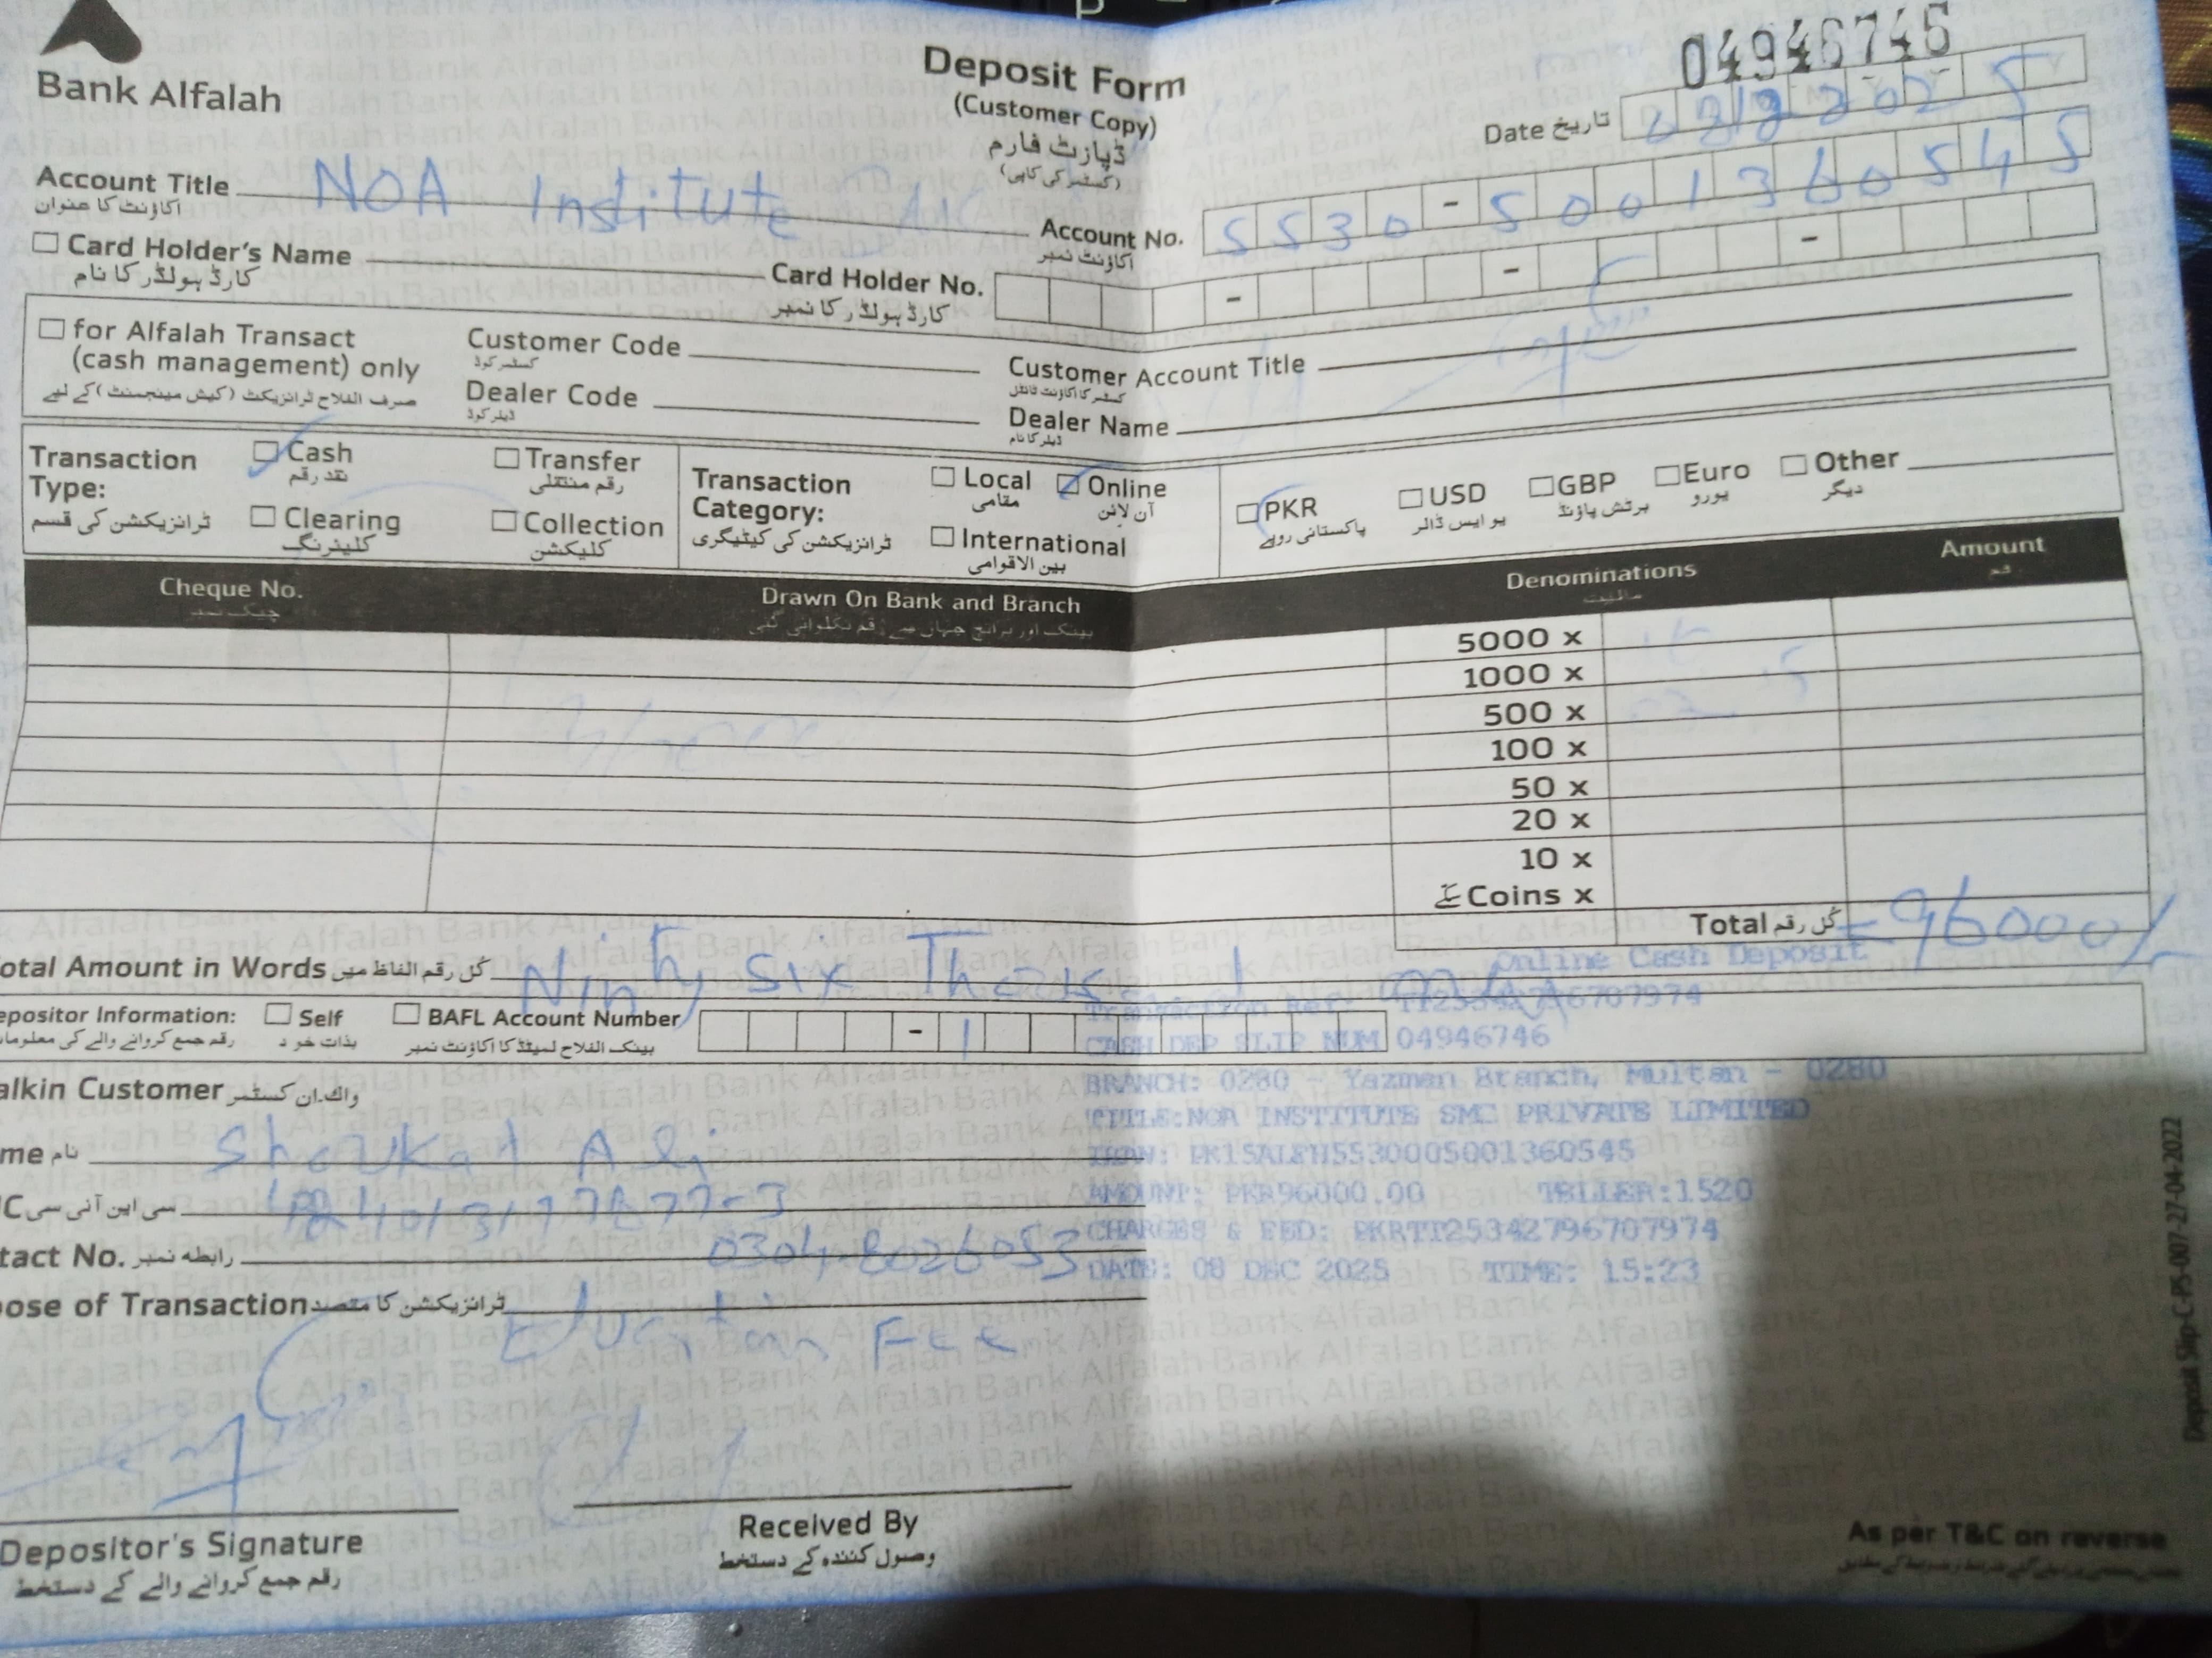 Bank Alfalah
Deposit Form
(Customer Copy)
ڈپازٹ فارم
(کسٹمر کی کاپی)
04946746
Date تاریخ
Account Title NOA Institute
اکاؤنٹ کا عنوان
Account No. 5530-5001360545
اکاؤنٹ نمبر
Card Holder's Name
کارڈ ہولڈر کا نام
Card Holder No.
کارڈ ہولڈر کا نمبر
for Alfalah Transact
(cash management) only
صرف الفلاح ٹرانزیکٹ (کیش مینجمنٹ) کے لیے
Customer Code
کسٹمر کوڈ
Customer Account Title
کسٹمر کا اکاؤنٹ ٹائٹل
Dealer Code
ڈیلر کوڈ
Dealer Name
ڈیلر کا نام
Transaction Type:
ٹرانزیکشن کی قسم
Cash
نقد رقم
Transfer
رقم منتقلی
Clearing
کلیئرنگ
Collection
کلیکشن
Transaction Category:
ٹرانزیکشن کی کیٹیگری
Local
مقامی
Online
آن لائن
International
بین الاقوامی
PKR
پاکستانی روپے
USD
یو ایس ڈالر
GBP
برٹش پاؤنڈ
Euro
یورو
Other
دیگر
Cheque No.
Drawn On Bank and Branch
بینک اور برانچ جہاں سے رقم نکلوائی گئی
Denominations
مالیت
Amount
رقم
5000 x
1000 x
500 x
100 x
50 x
20 x
10 x
سکے Coins x
Total کُل رقم = 96000/-
otal Amount in Words کُل رقم الفاظ میں Ninty Six
epositor Information:
رقم جمع کروانے والے کی معلومات
Self
بذات خود
BAFL Account Number
بینک الفلاح لمیٹڈ کا اکاؤنٹ نمبر
Online Cash Deposit
Transaction Ref: TT25342796707974
CASH DEP SLIP NUM 04946746
BRANCH: 0280 - Yazman Branch, Multan - 0280
TITLE:NOA INSTITUTE SMC PRIVATE LIMITED
IBAN: PK15ALFH5530005001360545
AMOUNT: PKR96000.00 TELLER:1520
CHARGES & FED: PKRTT25342796707974
DATE: 08 DEC 2025 TIME: 15:23
alkin Customer واک ان کسٹمر
me نام Shoukat Ali
C سی این آئی سی
tact No. رابطہ نمبر 0304-8026053
pose of Transaction ٹرانزیکشن کا مقصد
Fee
Depositor's Signature
رقم جمع کروانے والے کے دستخط
Received By
وصول کنندہ کے دستخط
As per T&C on reverse
Deposit Slip-C-PS-007-27-04-2022